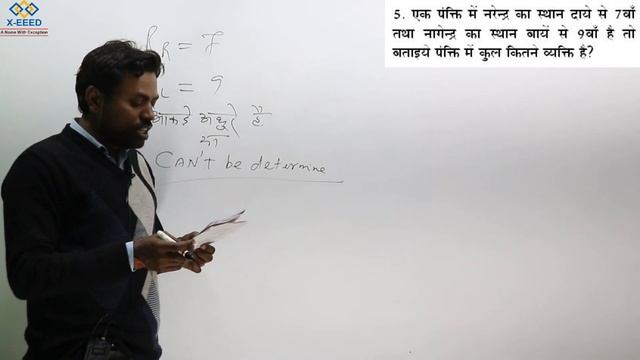 X-EEED
A Name With Exception
5. एक पंक्ति में नरेन्द्र का स्थान दाये से 7वाँ
तथा नागेन्द्र का स्थान बायें से 9वाँ है तो
बताइये पंक्ति में कुल कितने व्यक्ति है?
R = 7
L = 9
आकड़े अधुरे है
या
CAN'T be determine